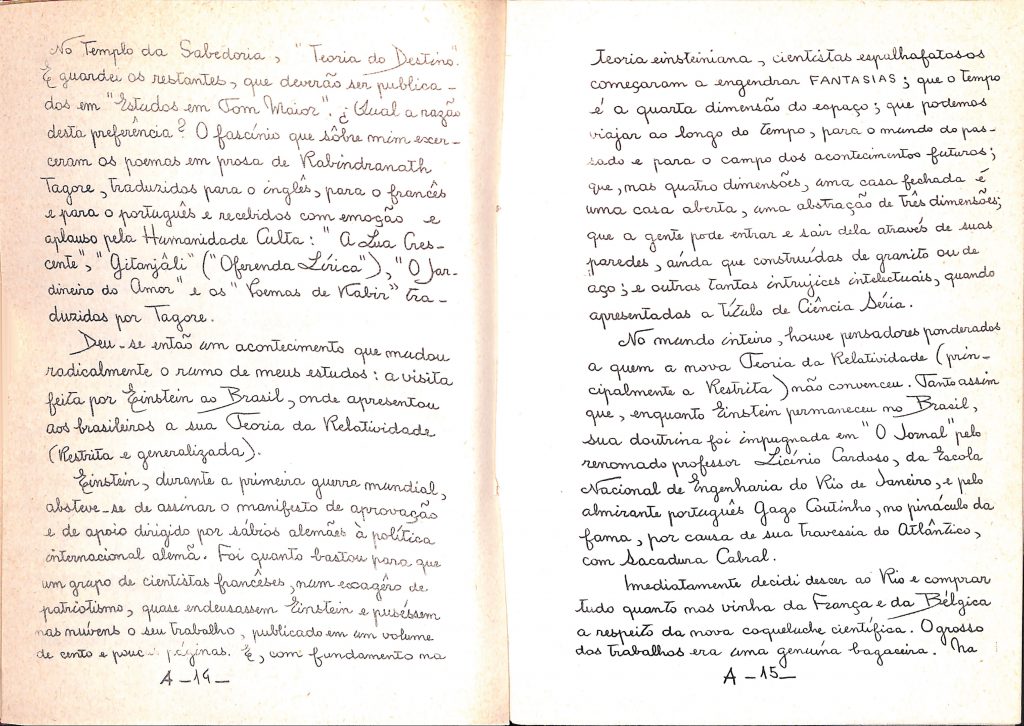 No Templo da Sabedoria, "Teoria do Destino".
E guardei os restantes, que deverão ser publica-
dos em "Estudos em Tom Maior". ¿Qual a razão
desta preferência? O fascínio que sôbre mim exer-
ceram os poemas em prosa de Rabindranath
Tagore, traduzidos para o inglês, para o francês
e para o português e recebidos com emoção e
aplauso pela Humanidade Culta: "A Lua Cres-
cente", "Gitanjâli" ("Oferenda Lírica"), "O Jar-
dineiro do Amor" e os "Poemas de Kabir" tra-
duzidos por Tagore.
Deu-se então um acontecimento que mudou
radicalmente o rumo de meus estudos: a visita
feita por Einstein ao Brasil, onde apresentou
aos brasileiros a sua Teoria da Relatividade
(Restrita e generalizada).
Einstein, durante a primeira guerra mundial,
absteve-se de assinar o manifesto de aprovação
e de apoio dirigido por sábios alemães à política
internacional alemã. Foi quanto bastou para que
um grupo de cientistas francêses, num exagêro de
patriotismo, quase endeusassem Einstein e puséssem
nas nuvens o seu trabalho, publicado em um volume
de cento e poucas páginas. E, com fundamento na
A-14-
teoria einsteiniana, cientistas espalhafatosos
começaram a engendrar FANTASIAS; que o tempo
é a quarta dimensão do espaço; que podemos
viajar ao longo do tempo, para o mundo do pas-
sado e para o campo dos acontecimentos futuros;
que, nas quatro dimensões, uma casa fechada é
uma casa aberta, uma abstração de três dimensões;
que a gente pode entrar e sair dela através de suas
paredes, ainda que construídas de granito ou de
aço; e outras tantas intrujices intelectuais, quando
apresentadas a título de Ciência Séria.
No mundo inteiro, houve pensadores ponderados
a quem a nova Teoria da Relatividade (prin-
cipalmente a Restrita) não convenceu. Tanto assim
que, enquanto Einstein permaneceu no Brasil,
sua doutrina foi impugnada em "O Jornal" pelo
renomado professor Licínio Cardoso, da Escola
Nacional de Engenharia do Rio de Janeiro, e pelo
almirante português Gago Coutinho, no pináculo da
fama, por causa de sua travessia do Atlântico,
com Sacadura Cabral.
Imediatamente decidi descer ao Rio e comprar
tudo quanto nos vinha da França e da Bélgica
a respeito da nova coqueluche científica. O grosso
dos trabalhos era uma genuína bagaceira. Na
A-15-